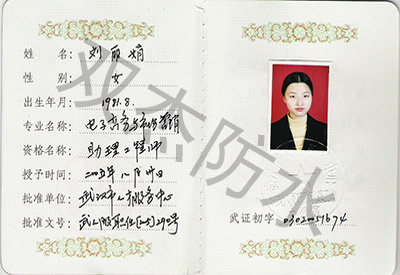 姓 名: 刘丽娟
性 别: 女
出生年月: 1981.8.
专业名称: 电子商务与市场营销
资格名称: 助理工程师
授予时间: 二00五年八月廿四日
批准单位: 武汉市人才服务中心
批准文号:
武证初字 0302051674
双杰防水